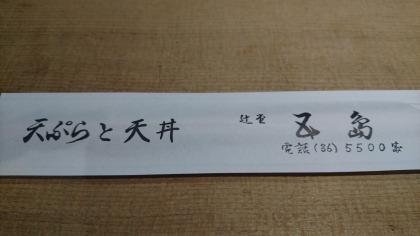 天ぷらと天丼
辻堂 五島
電話(36)5500番